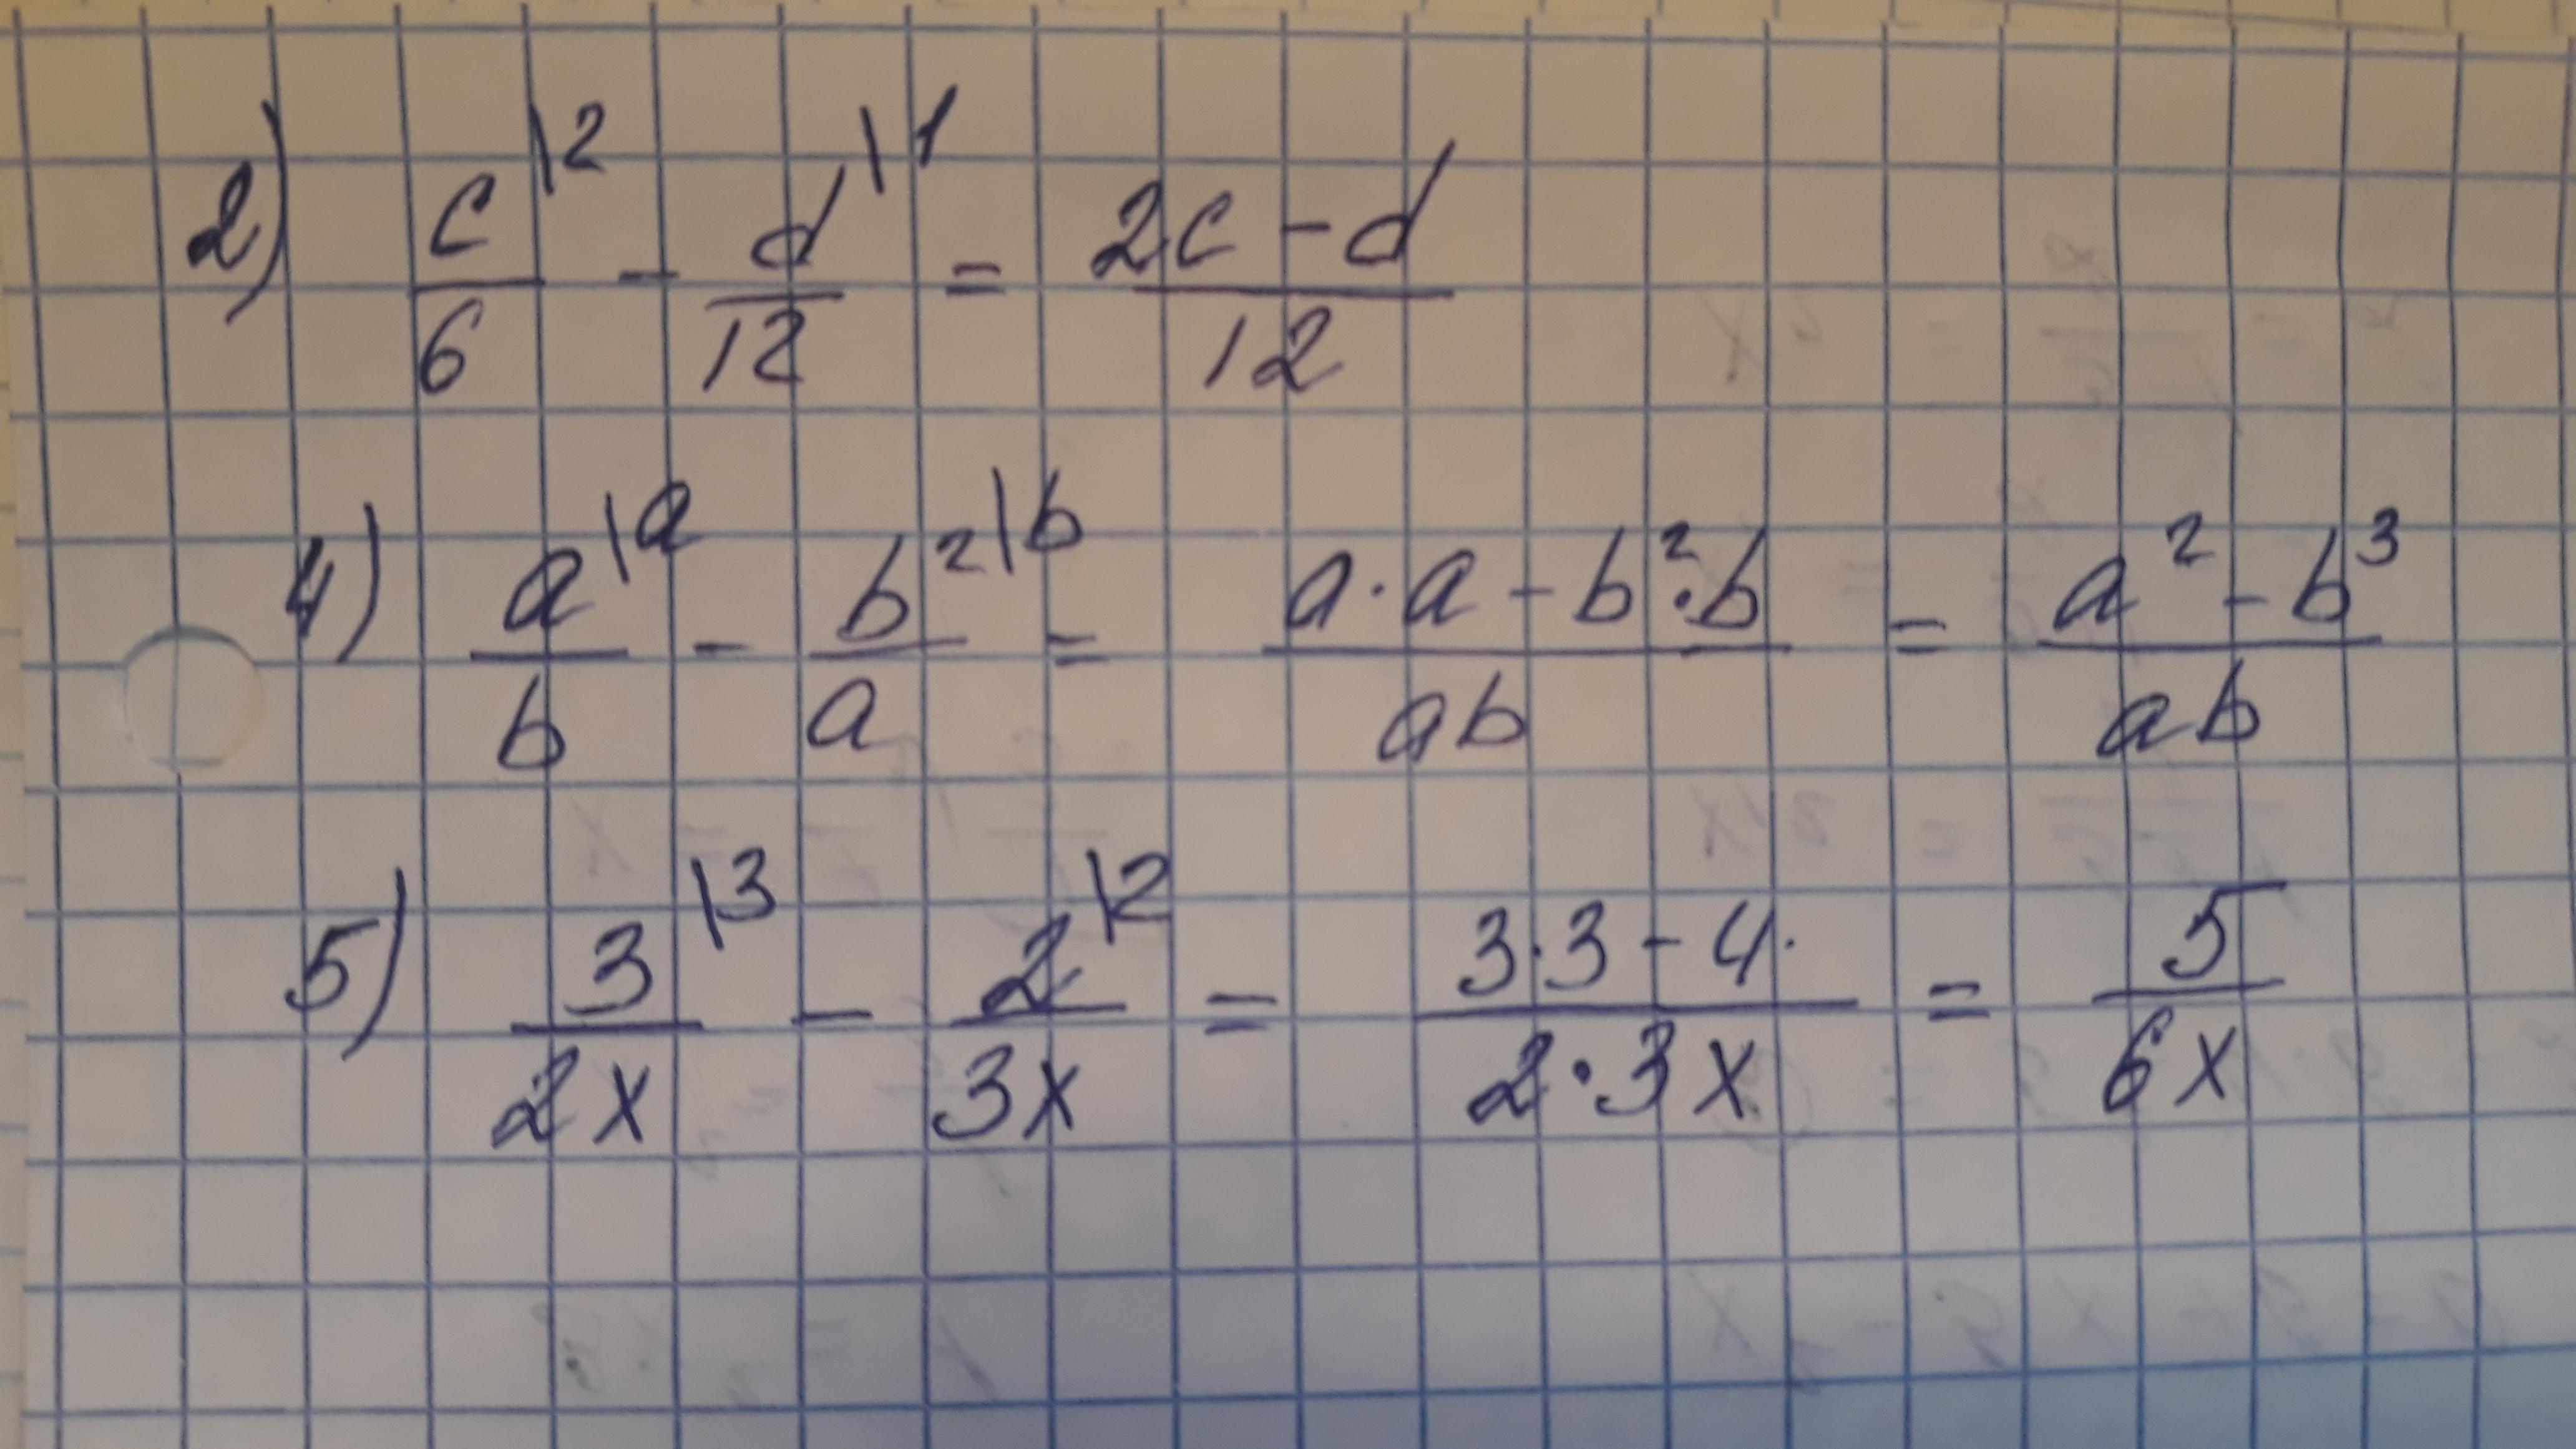 2) c\2/6 - d\1/12 = 2c - d/12
4) a\a/b - b²\b/a = a·a - b²·b/ab = a² - b³/ab
5) 3\3/2x - 2\2/3x = 3·3 - 4·/2·3x = 5/6x